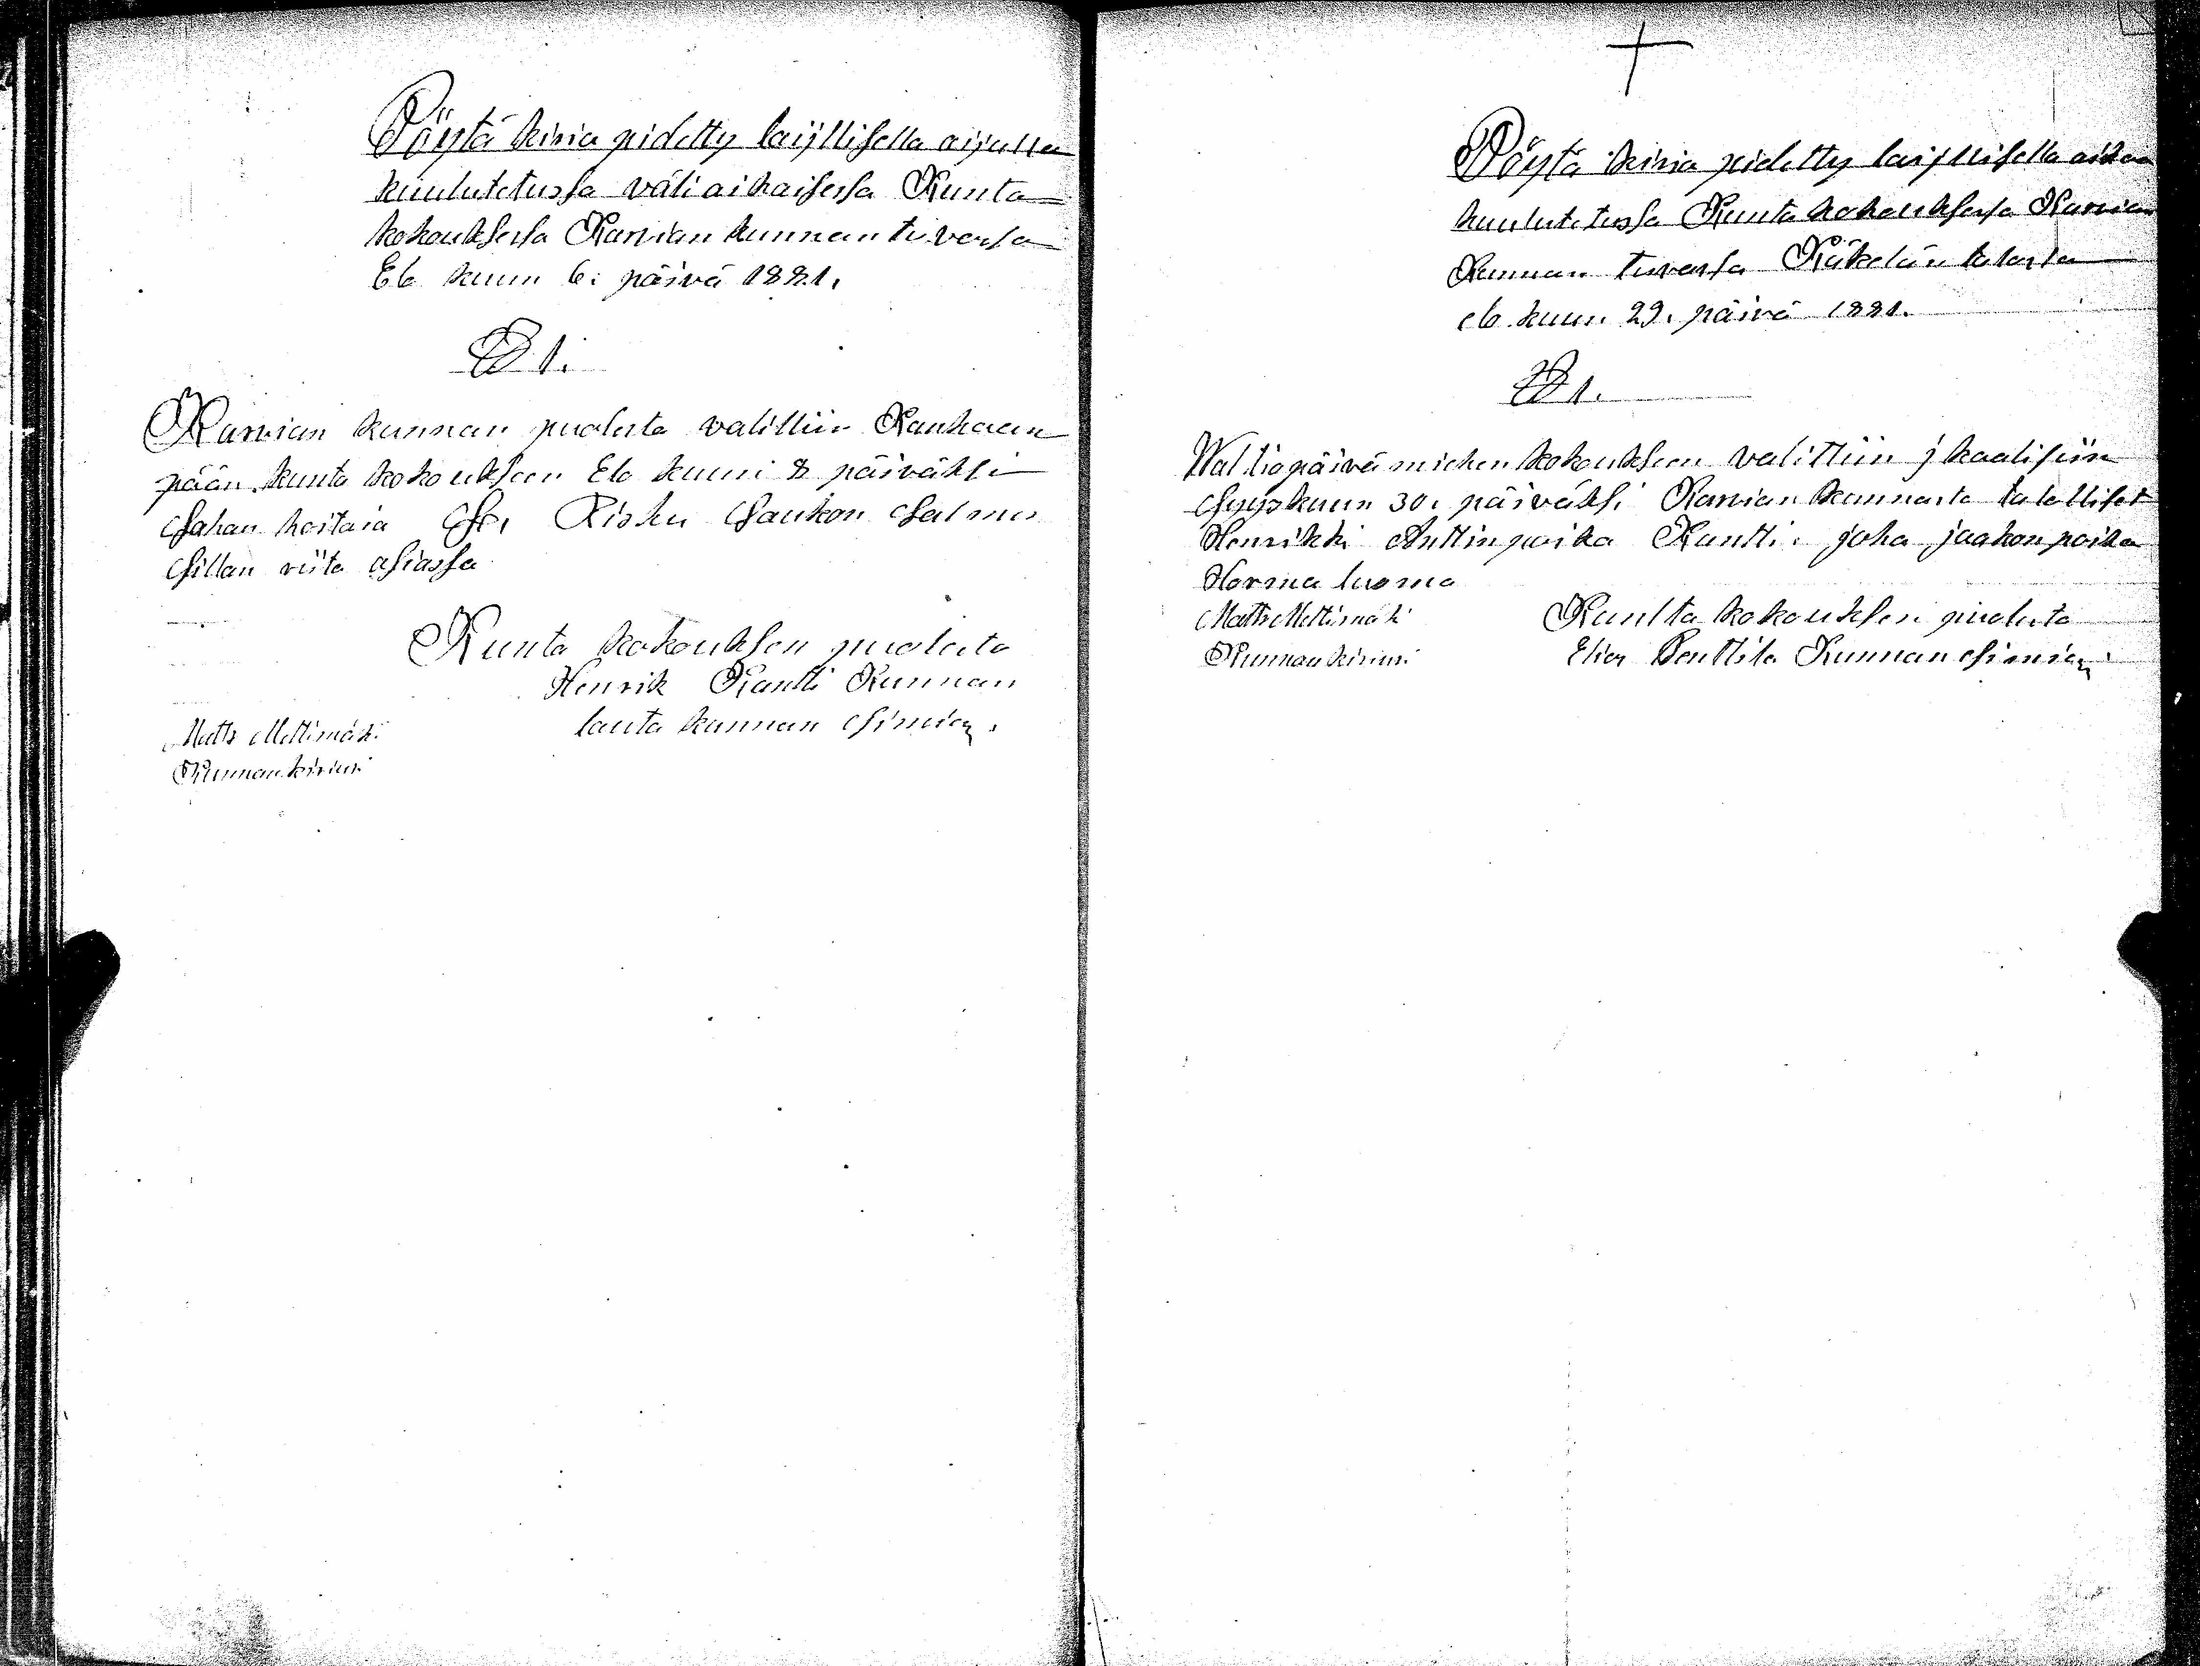 Pöytä kiria pidetty laijllisella aijalla
kuulutetussa väliaikaisessa Kunta
kokouksessa Karvian kunnan tuvassa
Elo kuun 6: päivä 1881.
§ 1.
Karvian kunnan puolesta valittiin Kankaan
pään kunta kokoukseen Elo kuun 8 päiväksi
Sahan hoitaia Fr. Risku Saukon Salmen
Sillan riita asiassa
Kunta kokouksen puolesta
Henrik Kantti Kunnan
lauta kunnan Esimies.
Matts Mettimäki
Kunnan kiriuri
Pöytä kiria pidetty laijllisella aikaa
kuulutetussa Kunta kokouksessa Karvian
Kunnan tuvassa Käkelän talossa
elo kuun 29. päivä 1881.
§ 1.
Waltiopäivä miehen kokoukseen valittiin jkaalisiin
Syyskuun 30. päiväksi Karvian kunnasta talolliset
Henrikki Anttin poika Kantti. joha jaakon poika
Horma luoma
Matts Mettimäki
Kunnan kiriuri
Kunlta kokouksen puolesta
Elias Penttilä Kunnan Esimies.